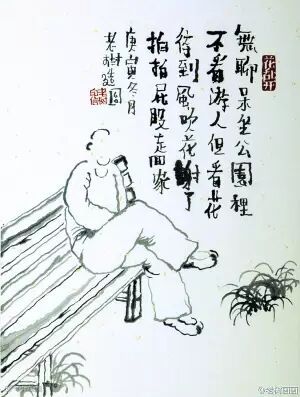 花亂開
無聊呆坐公園裡
不看游人但看花
待到風吹花謝了
拍拍屁股走回家
庚寅冬月
老樹
@老树画画